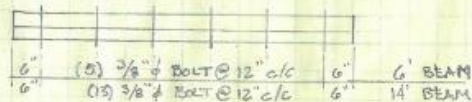 6" (5) 3/8"ϕ BOLT @ 12" c/c 6" 6' BEAM
6" (13) 3/8"ϕ BOLT @ 12" c/c 6" 14' BEAM